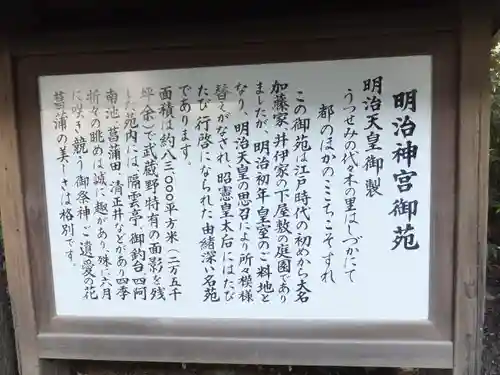 明治神宮御苑
明治天皇御製
うつせみの代々木の里はしづかにて
都のほかのここちこそすれ
この御苑は江戸時代の初めから大名
加藤家、井伊家の下屋敷の庭園であり
ましたが、明治初年皇室のご料地と
なり、明治天皇の思召により所々模様
替えがなされ、昭憲皇太后にはたび
たび行啓になられた由緒深い名苑
であります。
面積は約八三〇〇〇平方米（二万五千
坪）余で武蔵野特有の面影を残
した苑内には、隔雲亭、御釣台、四阿
南池、菖蒲田、清正井などがあり四季
折々の眺めは誠に趣があり、殊に六月
に咲き競う御祭神ご遺愛の花
菖蒲の美しさは格別です。